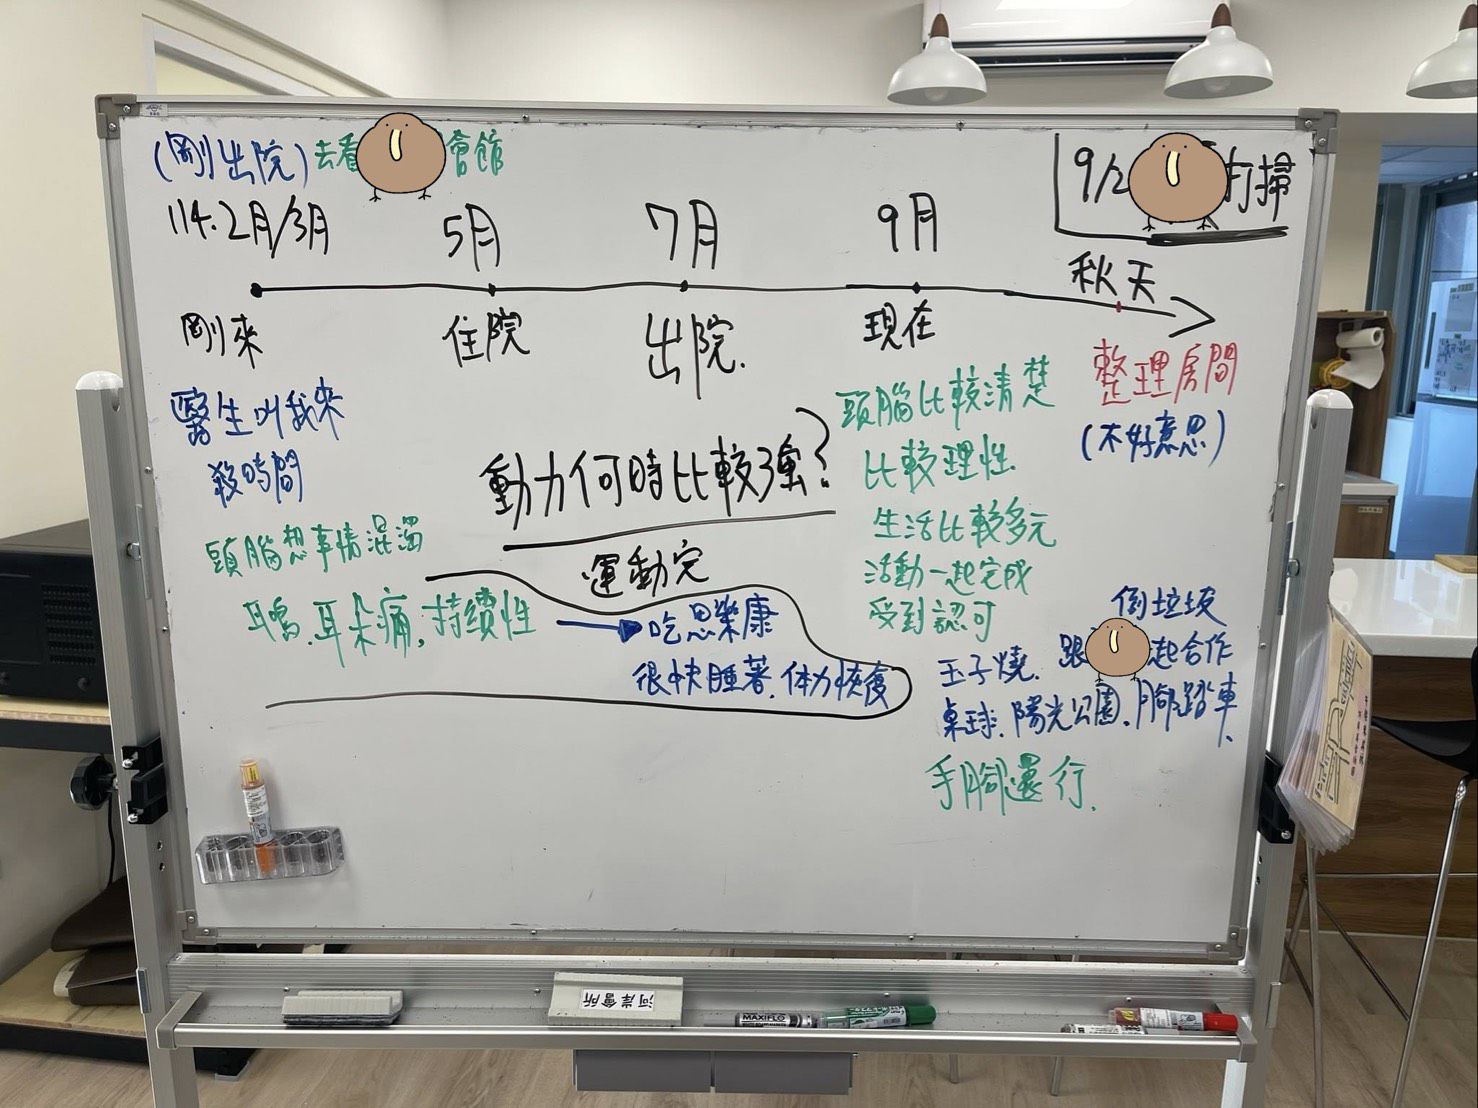 (剛出院)去看 會館
9/2 打掃
114.2月/3月 5月 7月 9月
秋天
剛來 住院 出院. 現在
整理房間
(不好意思)
醫生叫我來
殺時間
頭腦想事情混濁
耳鳴.耳朵痛,持續性
動力何時比較強?
運動完
吃思樂康
很快睡著.体力恢復
頭腦比較清楚
比較理性.
生活比較多元
活動一起完成
受到認可
倒垃圾
玉子燒. 跟 起合作
桌球.陽光公園.腳踏車.
手腳還行.
河岸會所
MAXIFLO